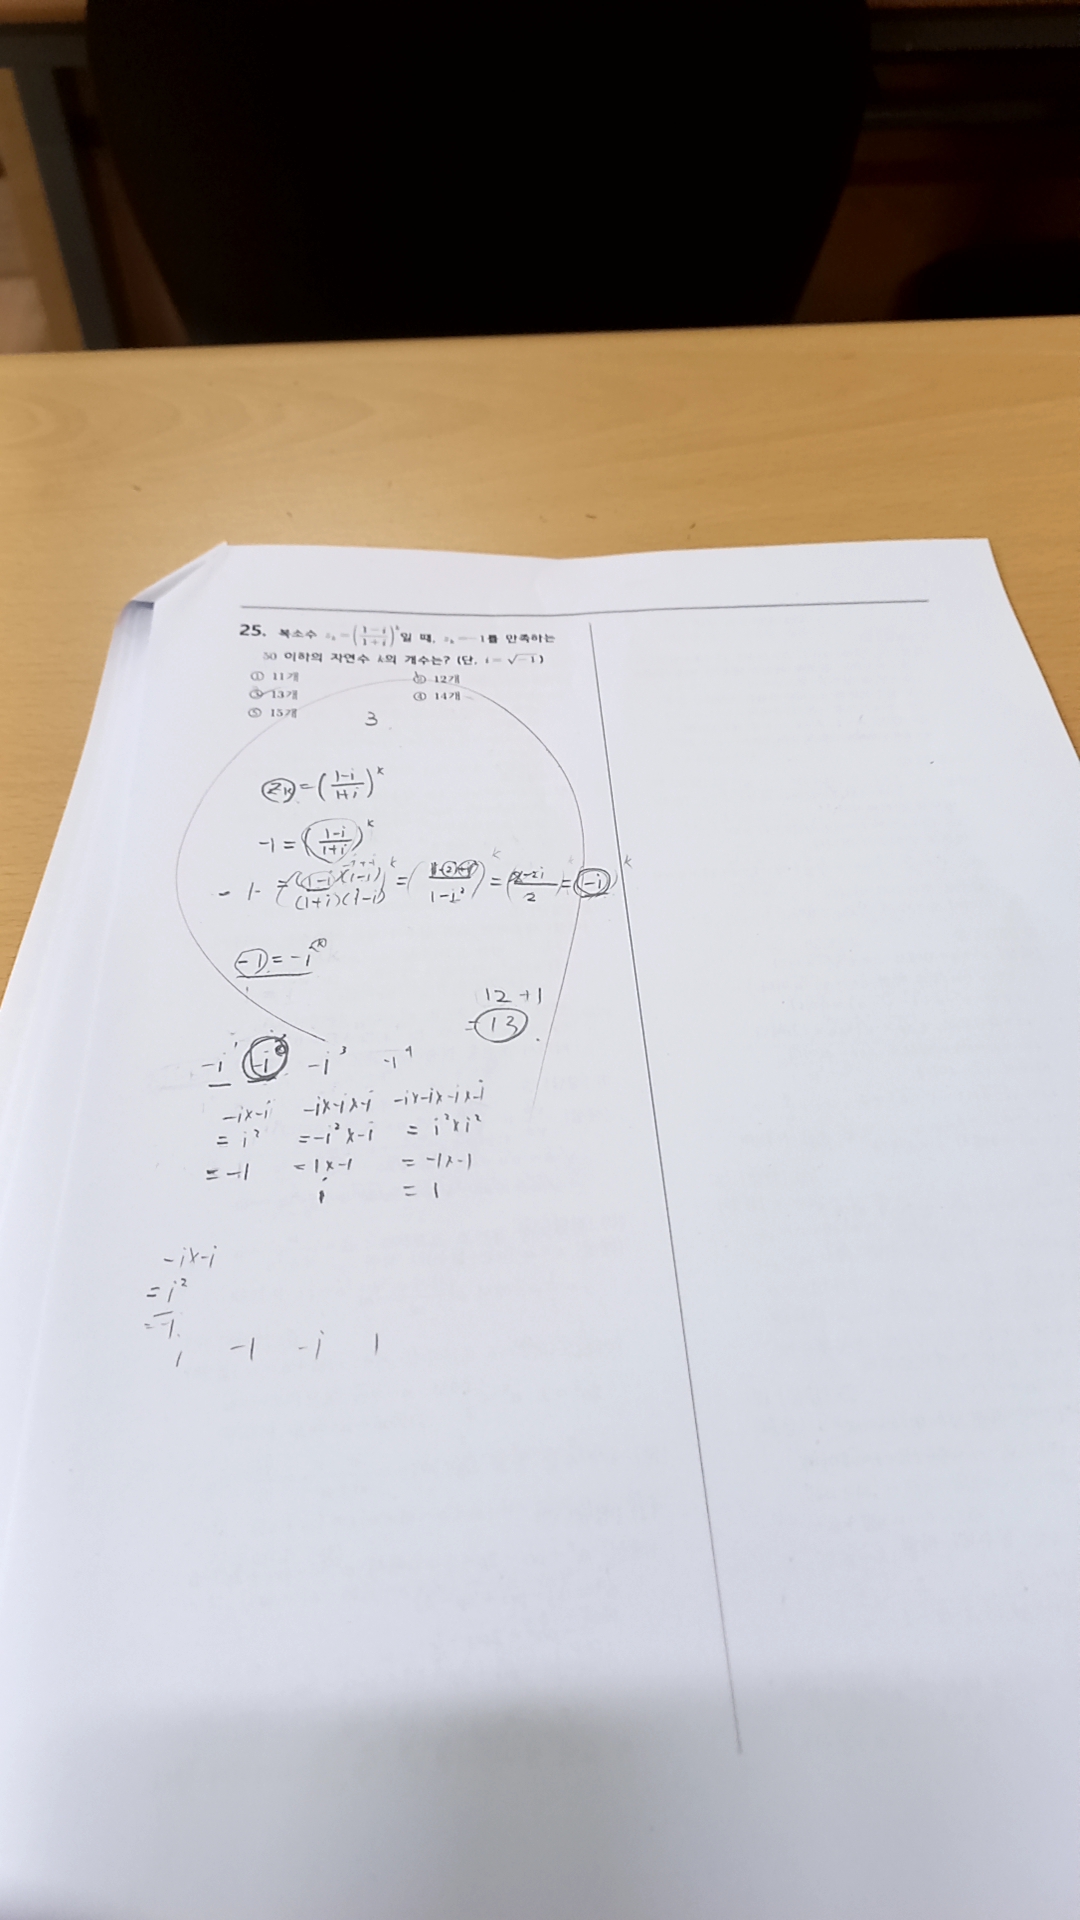 25. 복소수 z_k=((1-i)/(1+i))^k일 때, z_k=-1를 만족하는
50 이하의 자연수 k의 개수는? (단, i=√-1)
① 11개 ② 12개
③ 13개 ④ 14개
⑤ 15개
3
z_k=((1-i)/(1+i))^k
-1=((1-i)/(1+i))^k
-1=((1-i)(1-i)/(1+i)(1-i))^k=( /(1-i²))^k=( -2i/2)^k=(-i)^k
-1=-i^k
12+1
=13.
-i¹ -i² -i³ -i⁴
-i×-i -i×-i×-i -i×-i×-i×-i
=i² =-i²×-i =i²×i²
=-1 =1×-1 =-1×-1
i =1
-i×-i
=i²
=-1
i -1 -i 1